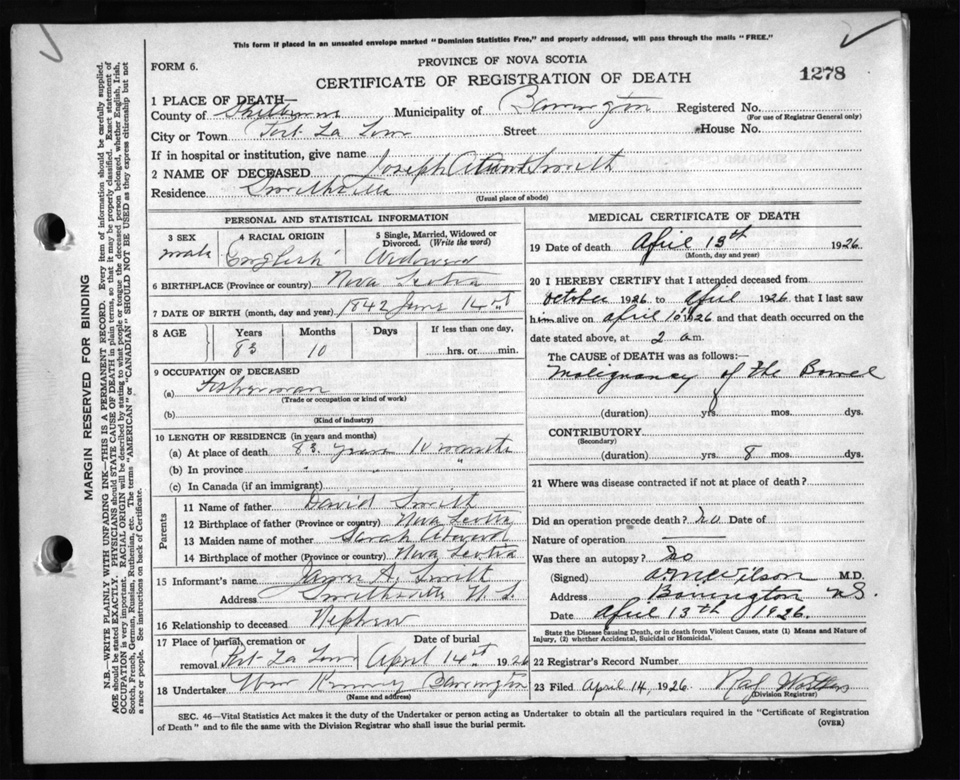 This form if placed in an unsealed envelope marked "Dominion Statistics Free," and properly addressed, will pass through the mails "FREE."
FORM 6.
PROVINCE OF NOVA SCOTIA
CERTIFICATE OF REGISTRATION OF DEATH
1278
1 PLACE OF DEATH—
County of Shelburne Municipality of Barrington Registered No.
(For use of Registrar General only)
City or Town Port La Tour Street House No.
If in hospital or institution, give name
2 NAME OF DECEASED Joseph Smith
Residence Smithsville
(Usual place of abode)
PERSONAL AND STATISTICAL INFORMATION
3 SEX 4 RACIAL ORIGIN 5 Single, Married, Widowed or Divorced. (Write the word)
male English Widowed
6 BIRTHPLACE (Province or country) Nova Scotia
7 DATE OF BIRTH (month, day and year) 1842 June 14
8 AGE Years Months Days If less than one day,
83 10 hrs. or min.
9 OCCUPATION OF DECEASED
(a) Fisherman
(Trade or occupation or kind of work)
(b)
(Kind of industry)
10 LENGTH OF RESIDENCE (in years and months)
(a) At place of death 83 years 10 months
(b) In province " " "
(c) In Canada (if an immigrant)
Parents
11 Name of father David Smith
12 Birthplace of father (Province or country) Nova Scotia
13 Maiden name of mother Sarah Atwood
14 Birthplace of mother (Province or country) Nova Scotia
15 Informant's name James A. Smith
Address Smithsville N.S.
16 Relationship to deceased Nephew
17 Place of burial, cremation or Date of burial
removal Port La Tour April 14 1926
18 Undertaker Wm Kenney Barrington
(Name and address)
MEDICAL CERTIFICATE OF DEATH
19 Date of death April 13th 1926
(Month, day and year)
20 I HEREBY CERTIFY that I attended deceased from
October 1926 to April 1926 that I last saw
him alive on April 10 1926 and that death occurred on the
date stated above, at 2 a.m.
The CAUSE of DEATH was as follows:—
Malignancy of the Bowel
(duration) yrs. mos. dys.
CONTRIBUTORY
(Secondary)
(duration) yrs. 8 mos. dys.
21 Where was disease contracted if not at place of death?
Did an operation precede death? no Date of
Nature of operation
Was there an autopsy? no
(Signed) Wilson M.D.
Address Barrington N.S.
Date April 13th 1926.
State the Disease causing Death, or in death from Violent Causes, state (1) Means and Nature of
Injury, (2) whether Accidental, Suicidal or Homicidal.
22 Registrar's Record Number
23 Filed April 14, 1926
(Division Registrar)
SEC. 46—Vital Statistics Act makes it the duty of the Undertaker or person acting as Undertaker to obtain all the particulars required in the "Certificate of Registration
of Death" and to file the same with the Division Registrar who shall issue the burial permit.
(OVER)
MARGIN RESERVED FOR BINDING
N.B.—WRITE PLAINLY WITH UNFADING INK—THIS IS A PERMANENT RECORD. Every item of information should be carefully supplied.
AGE should be stated EXACTLY. PHYSICIANS should STATE CAUSE OF DEATH in plain terms, so that it may be properly classified. Exact statement of
OCCUPATION is very important. RACIAL ORIGIN will be described by stating to what people or tongue the deceased person belonged, whether English, Irish,
Scotch, French, German, Russian, Ruthenian, etc. The terms "AMERICAN" or "CANADIAN" SHOULD NOT BE USED as they express citizenship but not
a race or people. See instructions on back of Certificate.